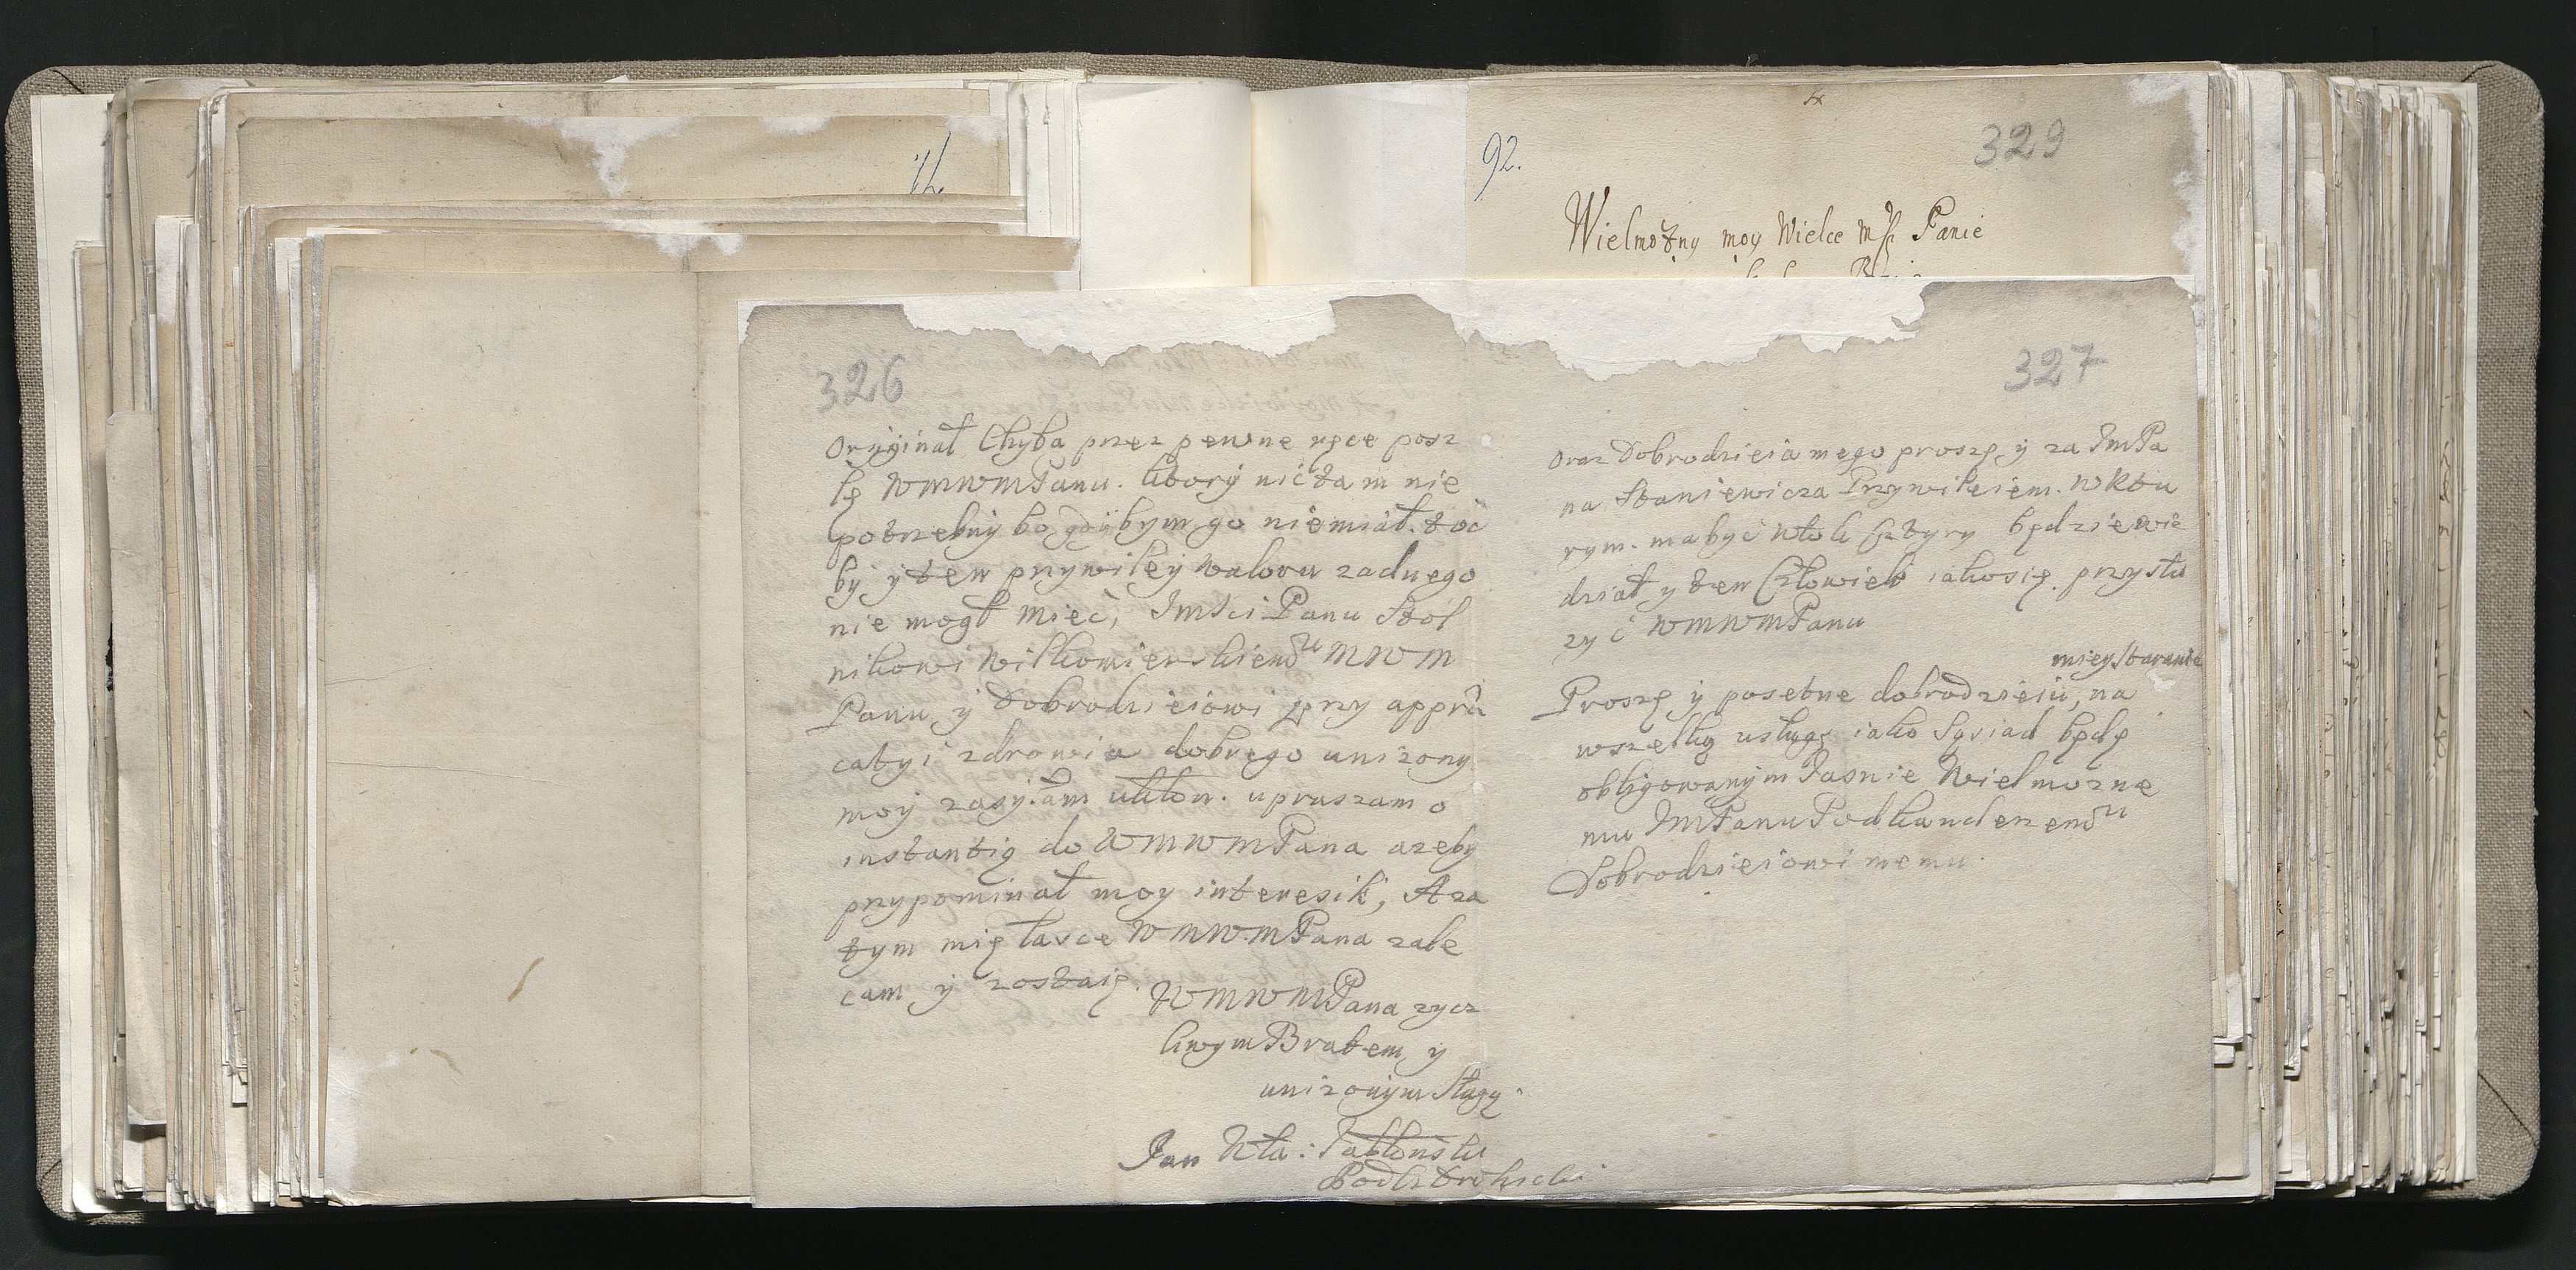 92.
329
Wielmożny moy Wielce Mść Panie
326
Oryginał Chyba przez pewne ręce posz
lę WMWMPanu. ktory nic tam nie
potrzebny bo gdybym go niemiał. toć
by y ten przywiley waloru zadnego
nie mogł mieć, ImSci Panu Stol
nikowi Wilkomierskiemu MWM
Panu y Dobrodzieiowi przy appre
catyi zdrowia dobrego unizony
moy zasyłam ukłon. upraszam o
instantią do WMWMPana azeby
przypominał moy interesik, Aza
tym mię łasce WMWMPana zale
cam y zostaię.
WMWMPana zycz
liwym Bratem y
unizonym Sługą.
Jan Wła: Jabłonski
327
oraz Dobrodzieia mego proszę y za ImPa
na Staniewicza Przywileiem. w ktu
rym. ma być włok Cztyry będzie wie
dział y ten Człowiek iako się przysłu
zyć WMWMPanu
miey staranie
Proszę y posetne dobrodzieiu, na
wszelką usługę iako Sąsiad będę
obligowanym Jasnie Wielmozne
mu ImPanu Podkanclerzemu
Dobrodzieiowi memu.